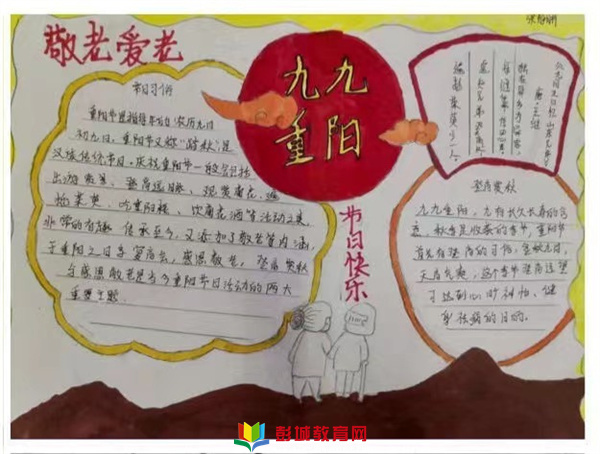 敬老爱老
九九
重阳
节日快乐
节日习俗
重阳节是指每年的农历九月
初九日。重阳节又称"踏秋",是
汉族传统节日。庆祝重阳节一般会包括
出游赏景、登高远眺、观赏菊花、遍
插茱萸、吃重阳糕、饮菊花酒等活动之来,
非常的有趣。传承至今,又添加了敬老等内涵,
于重阳之日享宴高会,感恩敬老。登高赏秋
与感恩敬老是当今重阳节日活动的两大
重要主题。
九月九日忆山东兄弟
唐:王维
独在异乡为异客,
每逢佳节倍思亲。
遥知兄弟登高处,
遍插茱萸少一人。
登高赏秋
九九重阳,九有长久长寿的含
意,秋季是收获的季节,重阳节
首先有登高的习俗,金秋九月,
天高气爽,这个季节登高远望
可达到心旷神怡、健
身祛病的目的。
彭城教育网